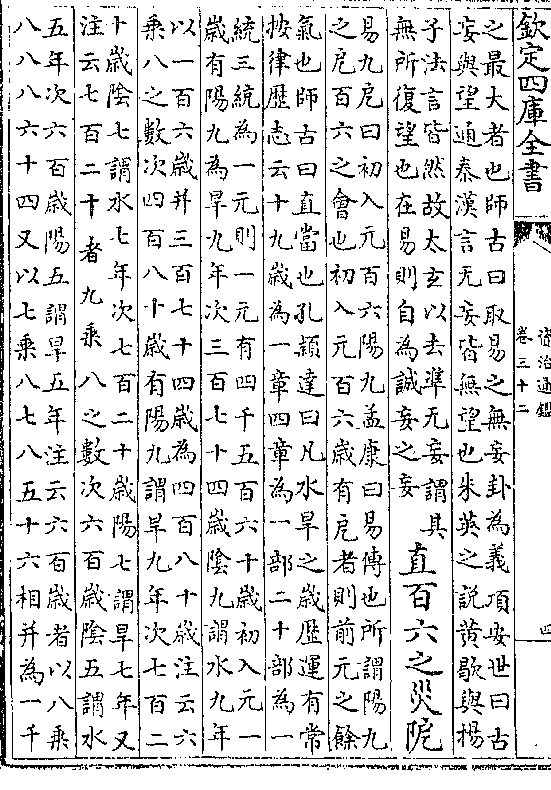 欽定四庫全書
資治通鑑
卷三十二
四
之最大者也師古曰取易之無妄卦為義項安世曰古
妄與望通秦漢言无妄皆無望也朱英之說黃歇與楊
子法言皆然故太玄以去準无妄謂其
無所復望也在易則自為誠妄之妄
直百六之災阸
易九戹曰初入元百六陽九孟康曰易傳也所謂陽九
之戹百六之會也初入元百六歲有戹者則前元之餘
氣也師古曰直當也孔穎達曰凡水旱之歲歷運有常
按律歷志云十九歲為一章四章為一部二十部為一
統三統為一元則一元有四千五百六十歲初入元一
歲有陽九為旱九年次三百七十四歲陰九謂水九年
以一百六歲并三百七十四歲為四百八十歲注云六
乘八之數次四百八十歲有陽九謂旱九年次七百二
十歲陰七謂水七年次七百二十歲陽七謂旱七年又
注云七百二十者九乘八之數次六百歲陰五謂水
五年次六百歲陽五謂旱五年注云六百歲者以八乘
八八八六十四又以七乘八七八五十六相并為一千